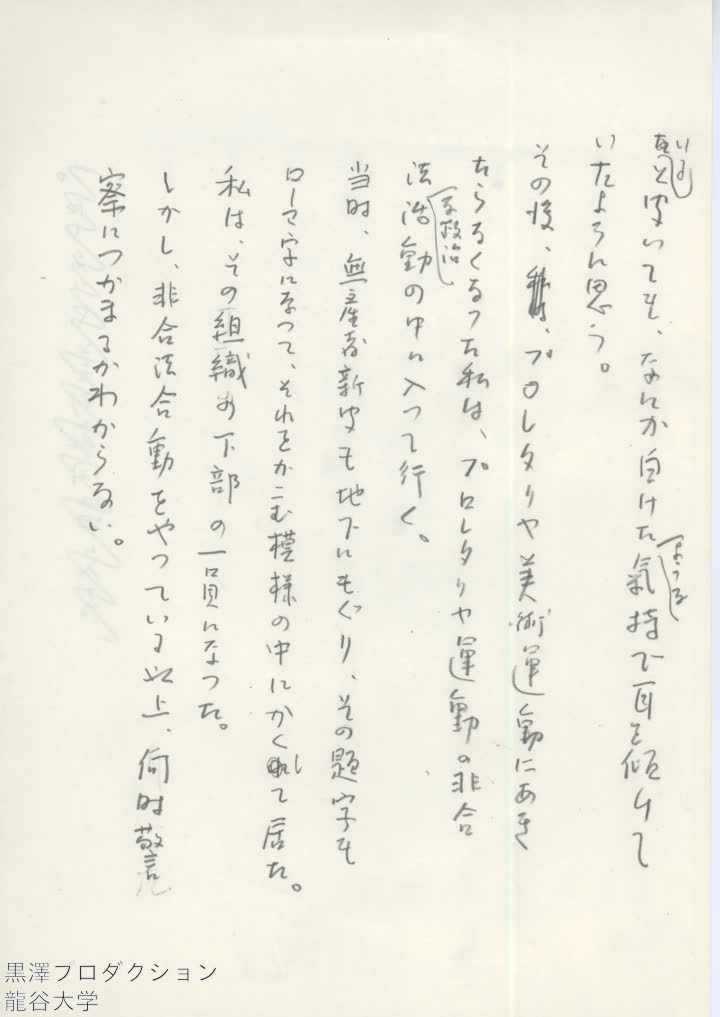 を聞いても、なにか白けた氣持で耳を傾けて
いたように思う。
その後、プロレタリヤ美術運動にあき
たらなくなった私は、プロレタリヤ運動の非合
法な政治活動の中に入って行く。
当時、無産者新聞も地下にもぐり、その題字も
ローマ字になって、それをかこむ模様の中にかくして居た。
私は、その組織の下部の一員になった。
しかし、非合法活動をやっている以上、何時警
察につかまるかわからない。
黒澤プロダクション
龍谷大学